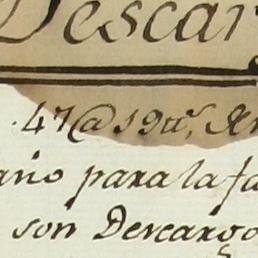 Descar
.47@19tt.s Xr
ano para la fa
son Descargo